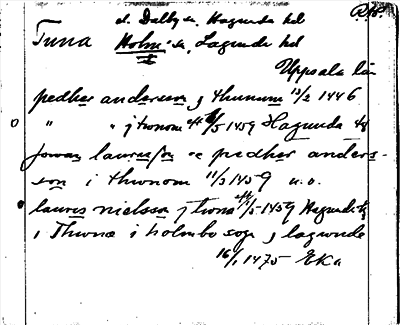 d. Dalby sn, Hagunda hd
Tuna Holm sn, Lagunda hd
Uppsala län
pedher anderson j thunum 13/2 1446
" " j tronom eft 8/5 1459 Hagunda
Jowan laurisson oc pedher anders-
son i thwnom 11/3 1459 u.o.
laures nielsson j tuna 1/5 1459 Hagund
i Thwnæ i holmbo sogn j lagwnde
16/1 1475 EKa